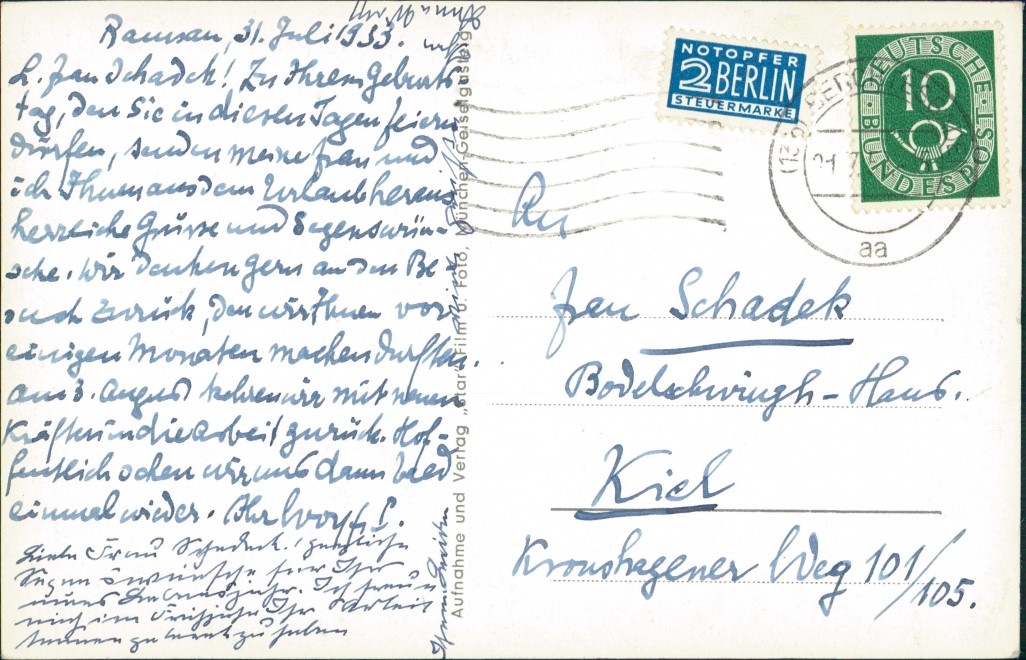 Ramsau, 31. Juli 1953.
L. Frau Schadek! Zu Ihrem Geburts
tag, den Sie in diesen Tagen feiern
dürfen, senden meine Frau und
ich Ihnen aus dem Urlaub heraus
herzliche Grüsse und Segenswün-
sche. Wir denken gern an den Be
such zurück, den wir Ihnen vor
einigen Monaten machen durften.
Am 3. August kehren wir mit neuen
Kräften in die Arbeit zurück. Hof-
fentlich sehen wir uns dann bald
einmal wieder. Ihr
Liebe Frau Schadek! Herzliche
Segenswünsche für Ihr
neues Lebensjahr. Ich freue
mich im Frühjahr Ihr
kennen gelernt zu haben
Aufnahme und Verlag „ Film u. Foto, München-Geiselgasteig
NOTOPFER
2 BERLIN
STEUERMARKE
DEUTSCHE BUNDESPOST
10
aa
An
Frau Schadek
Bodelschwingh-Haus.
Kiel
Kronshagener Weg 101/105.